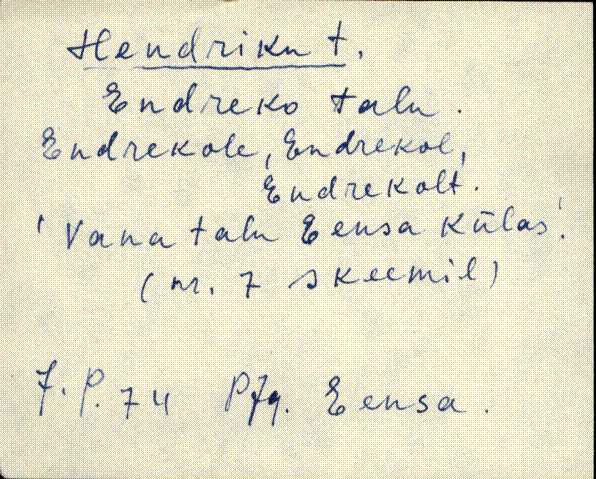 Hendriku t.
Endreko talu.
Endrekole, Endrekol,
Endrekolt.
'Vana talu Eensa külas.'
(nr. 7 skeemil)
J. P. 74 PJg. Eensa.